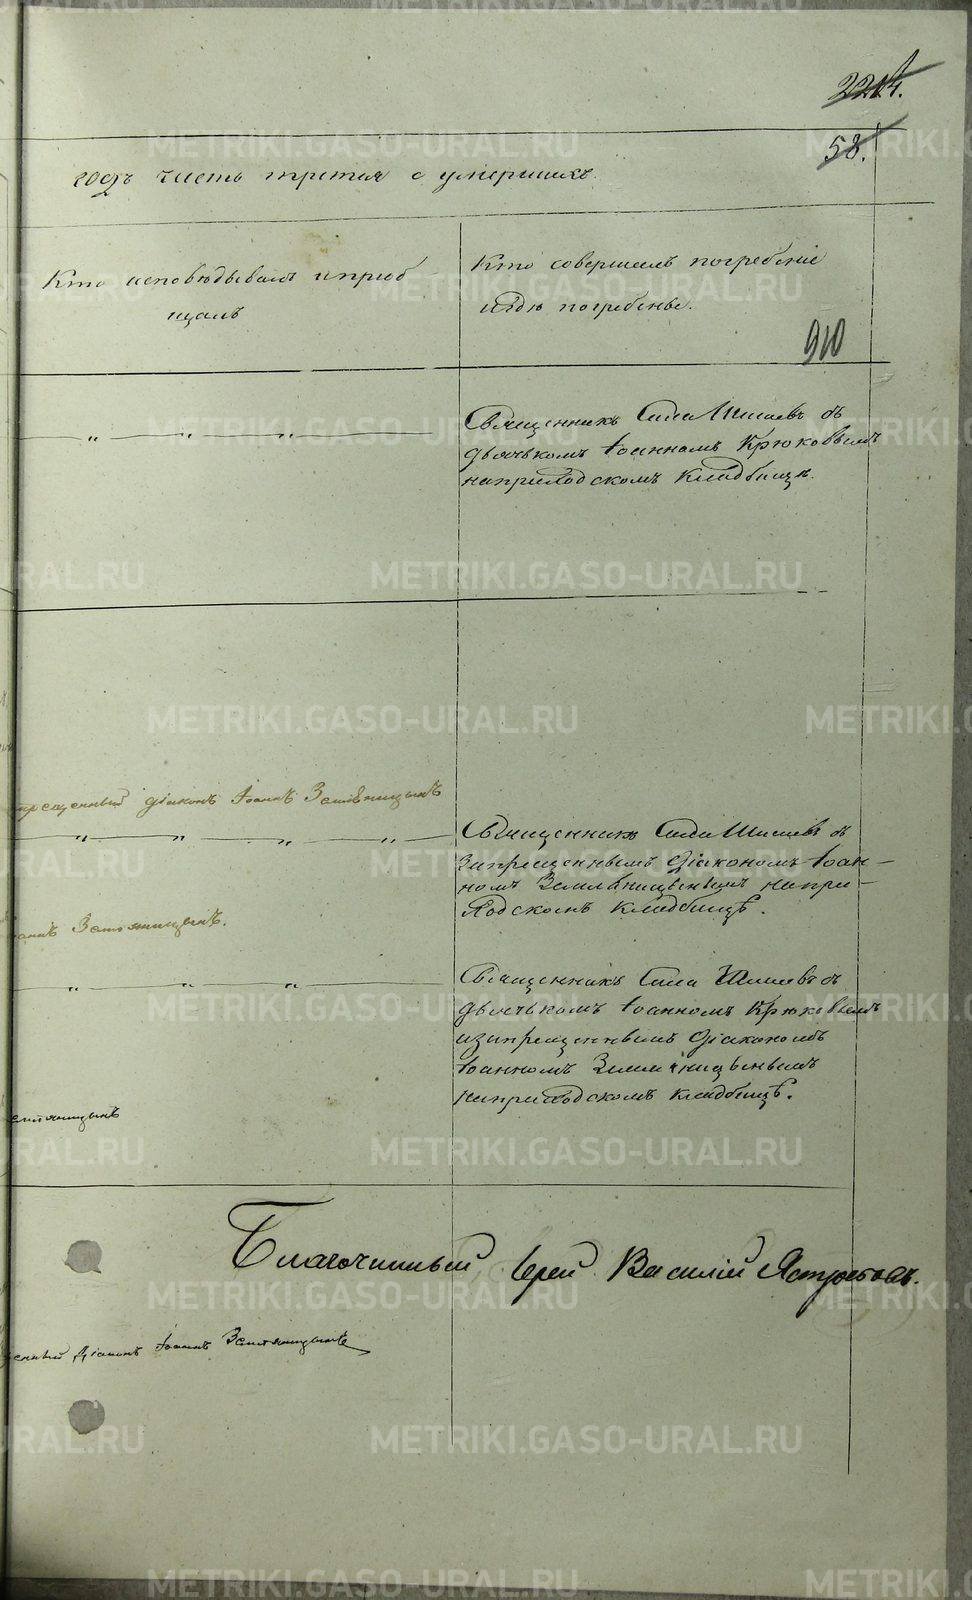 58.
годъ часть третья о умершихъ
Кто исповѣдывалъ и приоб
щалъ
Кто совершалъ погребеніе
и гдѣ погребены.
910
Священникъ Сила Шишевъ съ
дьячькомъ Іоанномъ Крюковымъ
наприходскомъ кладбищѣ.
діаконъ Іоаннъ Земляницынъ
Священникъ Сила Шишевъ съ
запрещеннымъ діакономъ Іоан-
номъ Земляницынымъ напри-
ходскомъ кладбищѣ.
Земляницынъ.
Священникъ Сила Шишевъ съ
дьячькомъ Іоанномъ Крюковымъ
изапрещеннымъ діакономъ
Іоанномъ Земляницынымъ
наприходскомъ кладбищѣ.
Благочинный Іерей Василій Ястребовъ.
діаконъ Іоаннъ Земляницынъ
METRIKI.GASO-URAL.RU